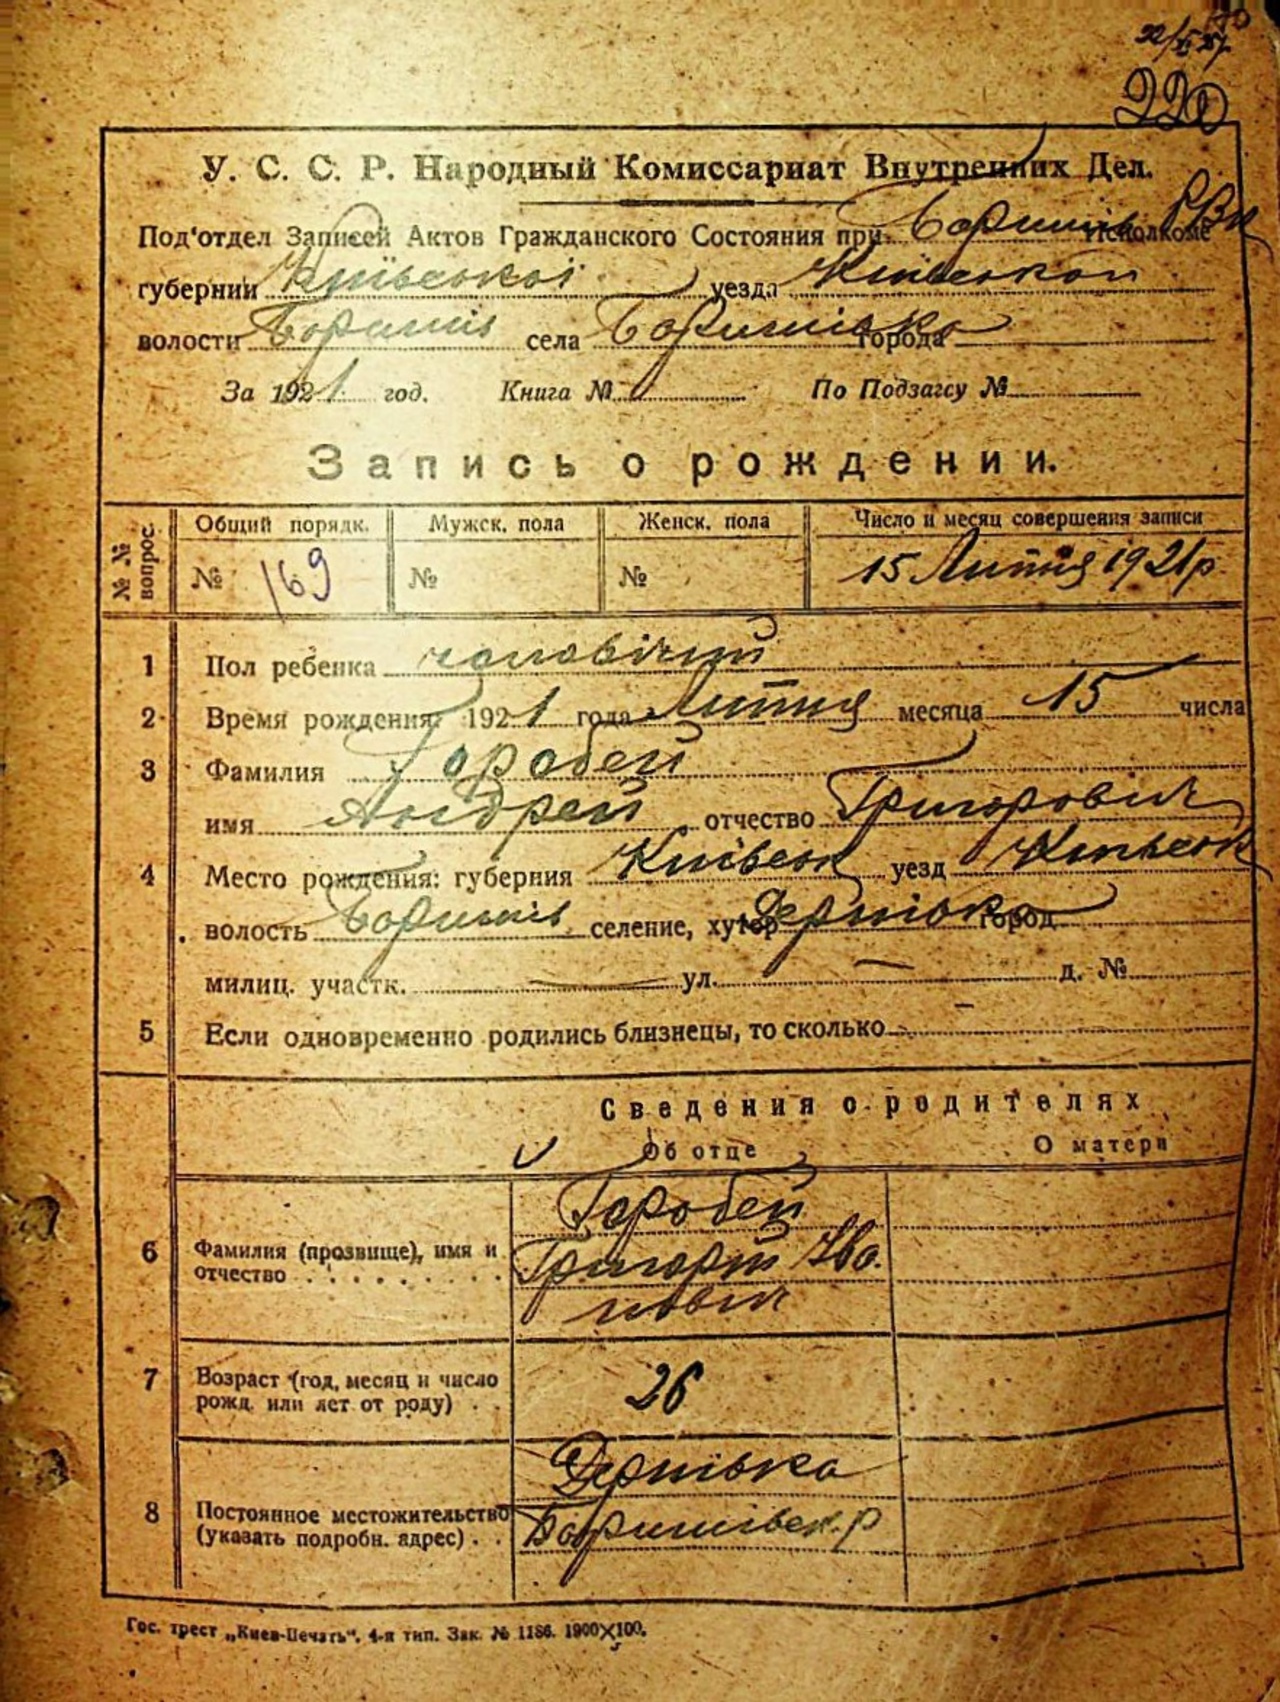 220
У. С. С. Р. Народный Комиссариат Внутренних Дел.
Под'отдел Записей Актов Гражданского Состояния при Баришів РВК Исполкоме
губернии Київської уезда Київської
волости Баришів села Баришівка города
За 1921 год. Книга № По Подзагсу №
Запись о рождении.
№ № вопрос. Общий порядк. Мужск. пола Женск. пола Число и месяц совершения записи
№ 169 № № 15 Липня 1921 р.
1 Пол ребенка чоловічий
2 Время рождения: 1921 года Липня месяца 15 числа
3 Фамилия Горобей
имя Андрей отчество Григорович
4 Место рождения: губерния Київськ уезд Київськ
волость Баришів селение, хутор Дернівка город
милиц. участк. — ул. — д. №
5 Если одновременно родились близнецы, то сколько –
Сведения о родителях
Об отце О матери
6 Фамилия (прозвище), имя и отчество Горобей
Григорій Iва-
нович
7 Возраст (год, месяц и число рожд. или лет от роду) 26
8 Постоянное местожительство (указать подробн. адрес) Дернівка
Баришівськ. р
Гос. трест „Киев-Печать“. 4-я тип. Зак. № 1186. 1900×100.